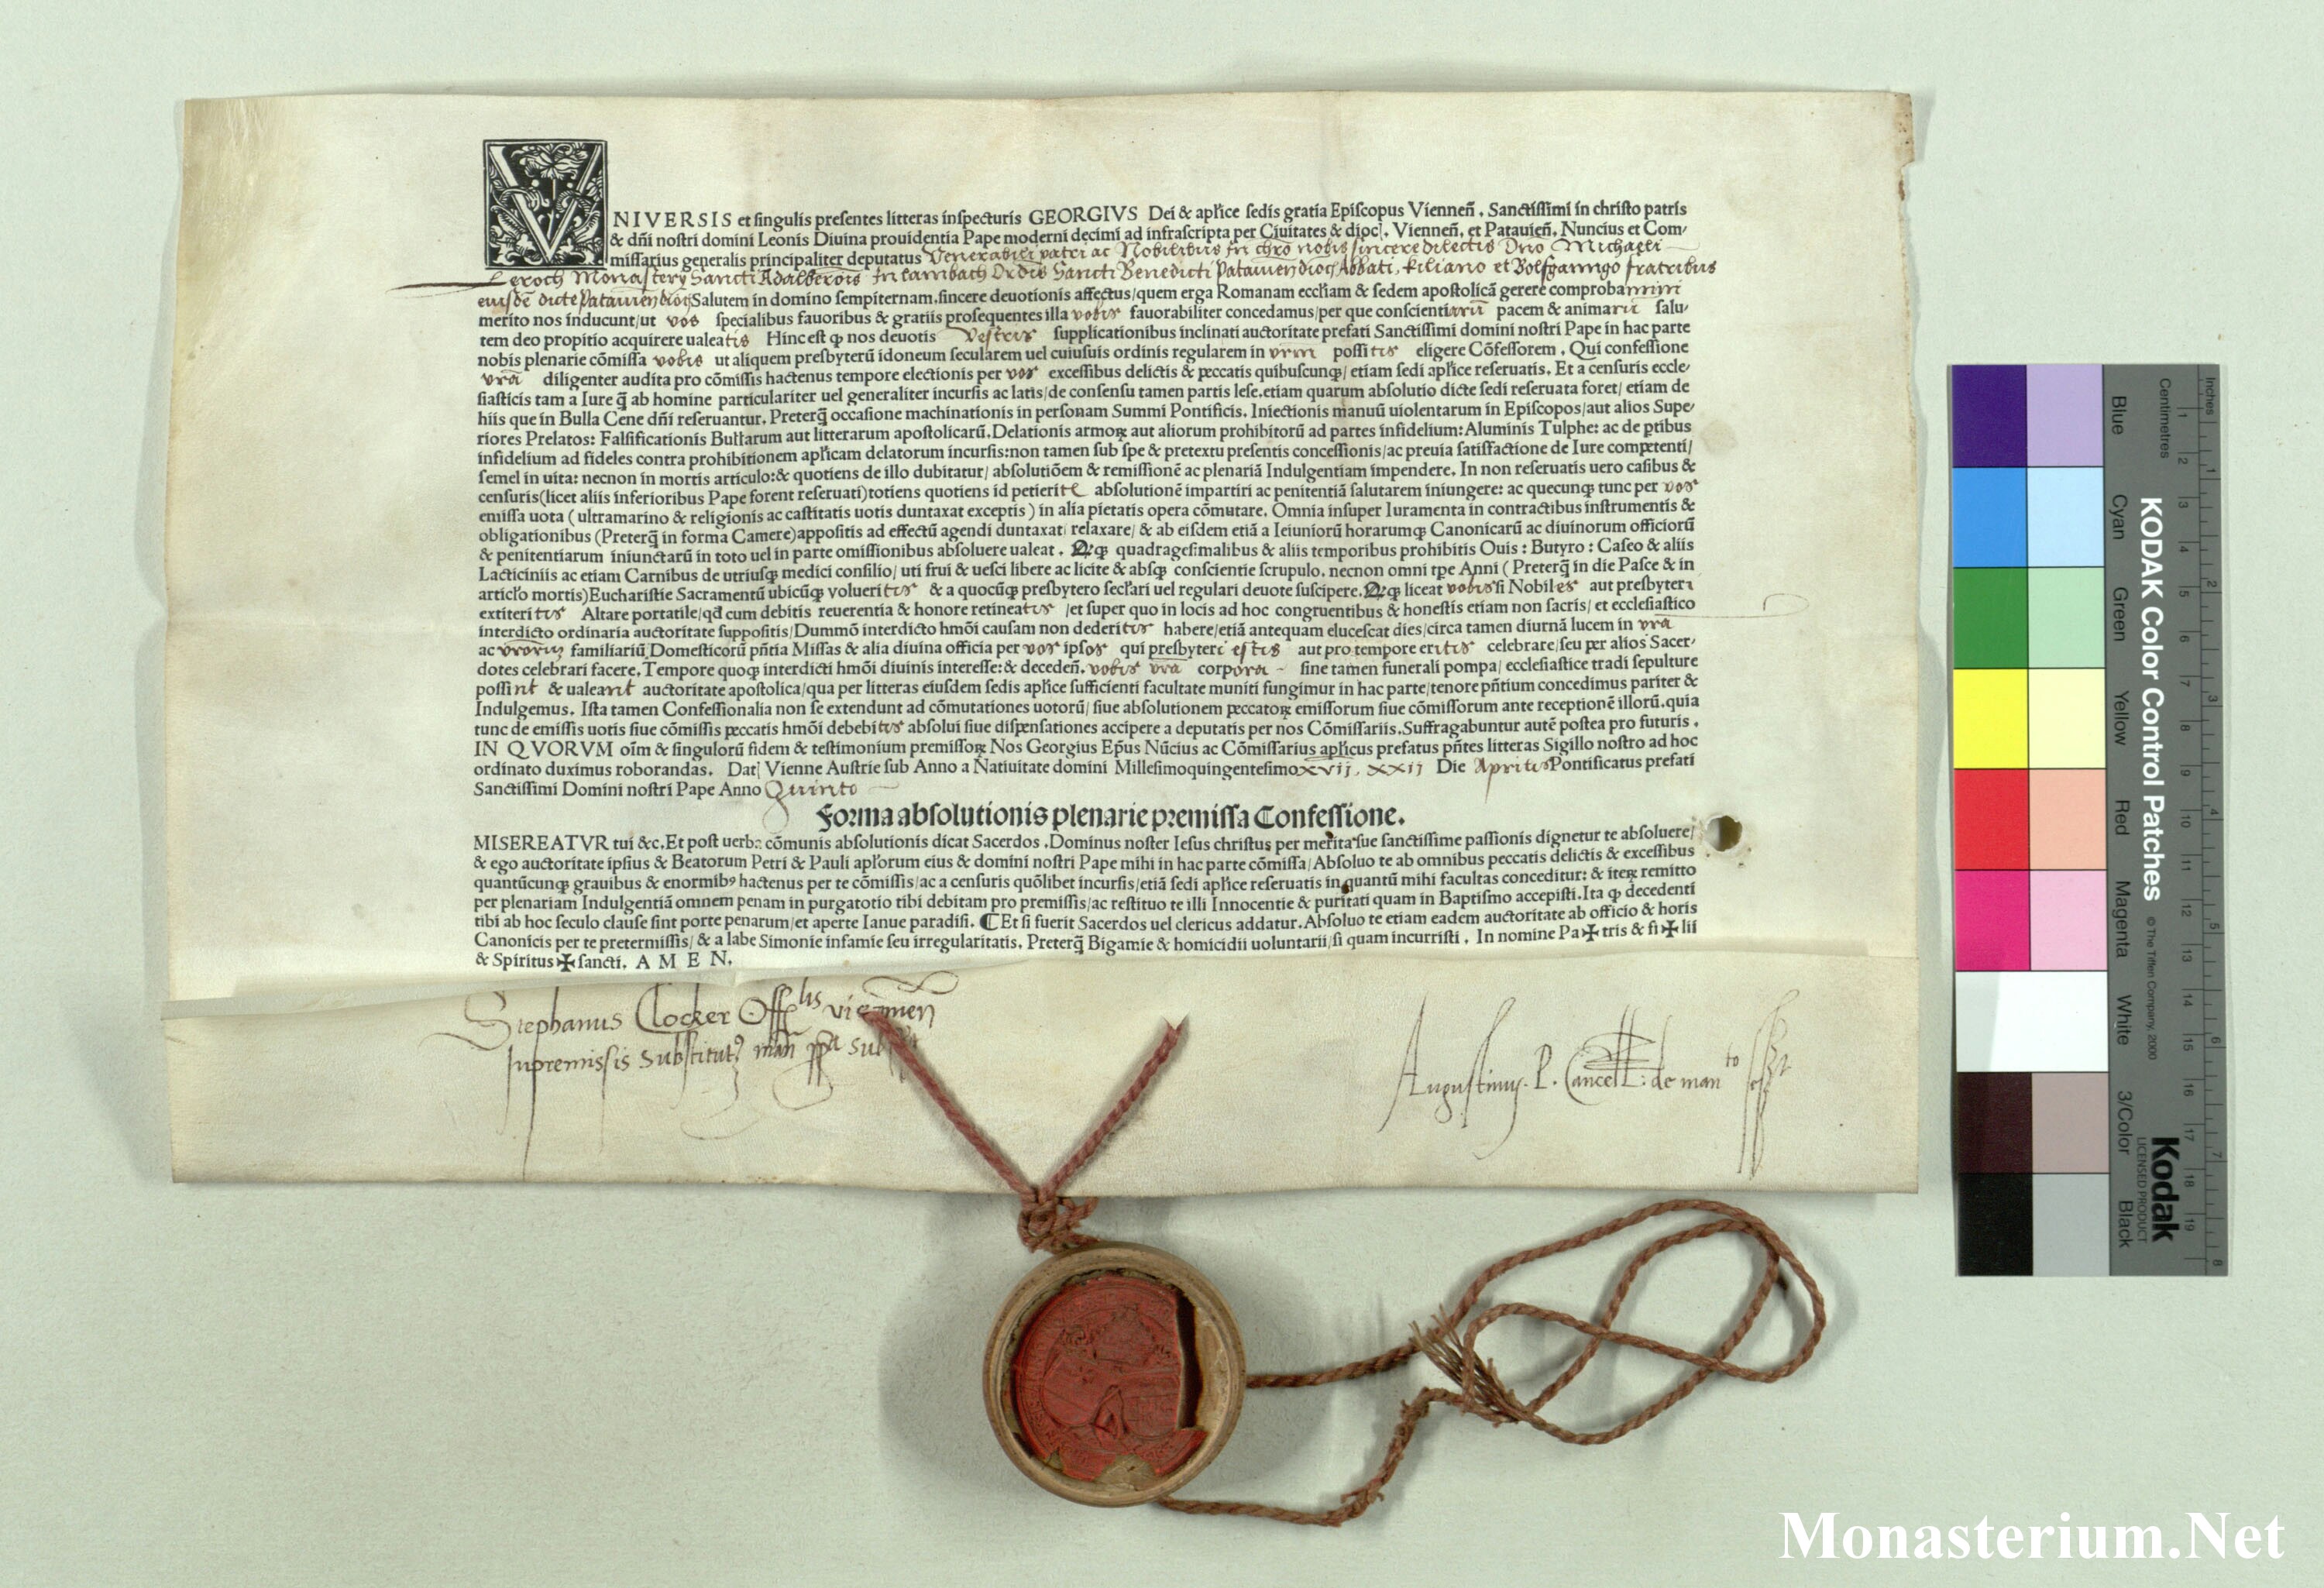 VNIVERSIS et singulis presentes litteras inspecturis GEORGIVS Dei & apl'ice sedis gratia Episcopus Vienneñ. Sanctissimi in christo patris
& dñi nostri domini Leonis Diuina prouidentia Pape moderni decimi ad infrascripta per Ciuitates & dioc. Vienneñ. et Patauieñ. Nuncius et Com-
missarius generalis principaliter deputatus Venerabili patri ac Nobilibus In chro nobis sincere dilectis Dno Michaeli
Leroch Monastery Sancti Adalberois In lambach Ordis Sancti Benedicti patauien dioc Abbati, kiliano et Bolfganngo fratribus
eiusdē dicte patauien dioc Salutem in domino sempiternam, sincere deuotionis affectus/quem erga Romanam eccl'iam & sedem apostolicā gerere comprobamini
merito nos inducunt/ut vos specialibus fauoribus & gratiis prosequentes illa vobis fauorabiliter concedamus/per que conscientiarū pacem & animarū salu-
tem deo propitio acquirere ualeatis Hinc est ꝙ nos deuotis Vestris supplicationibus inclinati auctoritate prefati Sanctissimi domini nostri Pape in hac parte
nobis plenarie cōmissa vobis ut aliquem presbyterū idoneum secularem uel cuiusuis ordinis regularem in vrm possitis eligere Cōfessorem. Qui confessione
vrā diligenter audita pro cōmissis hactenus tempore electionis per vos excessibus delictis & peccatis quibuscunqꝫ/ etiam sedi apl'ice reseruatis. Et a censuris eccle-
siasticis tam a Iure q̄ ab homine particulariter uel generaliter incursis ac latis/de consensu tamen partis lese.etiam quarum absolutio dicte sedi reseruata foret/ etiam de
hiis que in Bulla Cene dñi reseruantur. Preterq̄ occasione machinationis in personam Summi Pontificis. Iniectionis manuū uiolentarum in Episcopos/aut alios Supe-
riores Prelatos: Falsificationis Bullarum aut litterarum apostolicarū.Delationis armoꝝ aut aliorum prohibitorū ad partes infidelium: Aluminis Tulphe: ac de ꝑtibus
infidelium ad fideles contra prohibitionem apl'icam delatorum incursis:non tamen sub spe & pretextu presentis concessionis/ac preuia satisfactione de Iure competenti/
semel in uita: necnon in mortis articulo:& quotiens de illo dubitatur/ absolutiōem & remissionē ac plenariā Indulgentiam impendere. In non reseruatis uero casibus &
censuris(licet aliis inferioribus Pape forent reseruati)totiens quotiens id petierit absolutionē impartiri ac penitentiā salutarem iniungere: ac quecunqꝫ tunc per vos
emissa uota ( ultramarino & religionis ac castitatis uotis duntaxat exceptis ) in alia pietatis opera cōmutare. Omnia insuper Iuramenta in contractibus instrumentis &
obligationibus (Preterq̄ in forma Camere)appositis ad effectū agendi duntaxat/ relaxare/ & ab eisdem etiā a Ieiuniorū horarumqꝫ Canonicarū ac diuinorum officiorū
& penitentiarum iniunctarū in toto uel in parte omissionibus absoluere ualeat. Atqꝫ quadragesimalibus & aliis temporibus prohibitis Ouis : Butyro : Caseo & aliis
Lacticiniis ac etiam Carnibus de utriusqꝫ medici consilio/ uti frui & uesci libere ac licite & absqꝫ conscientie scrupulo. necnon omni tpe Anni ( Preterq̄ in die Pasce & in
articl'o mortis)Eucharistie Sacramentū ubicūqꝫ volueritis & a quocūqꝫ presbytero secl'ari uel regulari deuote suscipere. Atqꝫ liceat vobis si Nobiles aut presbyteri
extiteritis Altare portatile/qd cum debitis reuerentia & honore retineatis /et super quo in locis ad hoc congruentibus & honestis etiam non sacris/ et ecclesiastico
interdicto ordinaria auctoritate suppositis/Dummō interdicto hmōi causam non dederitis habere/etiā antequam elucescat dies/circa tamen diurnā lucem in vrā
ac vrorum familiariū Domesticorū pñtia Missas & alia diuina officia per vos ipsos qui presbyteri estis aut pro tempore eritis celebrare/seu per alios Sacer-
dotes celebrari facere. Tempore quoqꝫ interdicti hmōi diuinis interesse:& decedeñ. vobis vrā corpora sine tamen funerali pompa/ ecclesiastice tradi sepulture
possint & ualeant auctoritate apostolica/qua per litteras eiusdem sedis apl'ice sufficienti facultate muniti fungimur in hac parte/tenore pñtium concedimus pariter &
Indulgemus. Ista tamen Confessionalia non se extendunt ad cōmutationes uotorū/ siue absolutionem peccatoꝝ emissorum siue cōmissorum ante receptionē illorū.quia
tunc de emissis uotis siue cōmissis peccatis hmōi debebitis absolui siue dispensationes accipere a deputatis per nos Cōmissariis.Suffragabuntur autē postea pro futuris.
IN QVORVM oīm & singulorū fidem & testimonium premissoꝝ Nos Georgius Ep̄us Nūcius ac Cōmissarius apl'icus prefatus pñtes litteras Sigillo nostro ad hoc
ordinato duximus roborandas. Dat Vienne Austrie sub Anno a Natiuitate domini Millesimoquingentesimo xvij. xxij Die Aprilis Pontificatus prefati
Sanctissimi Domini nostri Pape Anno Quinto
Forma absolutionis plenarie premissa Confessione.
MISEREATVR tui &c.Et post uerba cōmunis absolutionis dicat Sacerdos.Dominus noster Iesus christus per merita sue sanctissime passionis dignetur te absoluere/
& ego auctoritate ipsius & Beatorum Petri & Pauli apl'orum eius & domini nostri Pape mihi in hac parte cōmissa/Absoluo te ab omnibus peccatis delictis & excessibus
quantūcunqꝫ grauibus & enormibꝰ hactenus per te cōmissis/ac a censuris quōlibet incursis/etiā sedi apl'ice reseruatis in quantū mihi facultas conceditur: & iteꝝ remitto
per plenariam Indulgentiā omnem penam in purgatotio tibi debitam pro premissis/ac restituo te illi Innocentie & puritati quam in Baptismo accepisti.Ita ꝙ decedenti
tibi ab hoc seculo clause sint porte penarum/et aperte Ianue paradisi. ¶Et si fuerit Sacerdos uel clericus addatur.Absoluo te etiam eadem auctoritate ab officio & horis
Canonicis per te pretermissis/ & a labe Simonie infamie seu irregularitatis. Preterq̄ Bigamie & homicidii uoluntarii/si quam incurristi. In nomine Pa✠tris & fi✠lii
& Spiritus✠sancti. AMEN.
Stephanus Clocker Offlis viennen
Inpremissis substitutꝰ
Augustinus. P. Cancell: de manto
KODAK Color Control Patches
© The Tiffen Company, 2000
Kodak
LICENSED PRODUCT
Inches
Centimetres
Blue
Cyan
Green
Yellow
Red
Magenta
White
3/Color
Black
Monasterium.Net